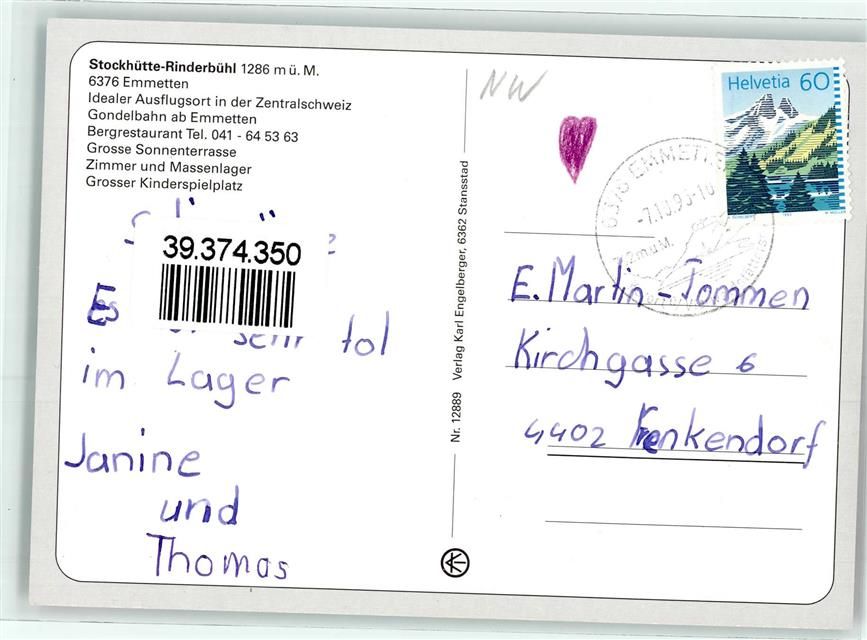 Stockhütte-Rinderbühl 1286 m ü. M.
6376 Emmetten
Idealer Ausflugsort in der Zentralschweiz
Gondelbahn ab Emmetten
Bergrestaurant Tel. 041 - 64 53 63
Grosse Sonnenterrasse
Zimmer und Massenlager
Grosser Kinderspielplatz
39.374.350
Es
sehr tol
im Lager
Janine
und
Thomas
Nr. 12889 Verlag Karl Engelberger, 6362 Stansstad
NW
Helvetia 60
6376 EMMETTEN
E. Martin - Tommen
Kirchgasse 6
4402 Frenkendorf